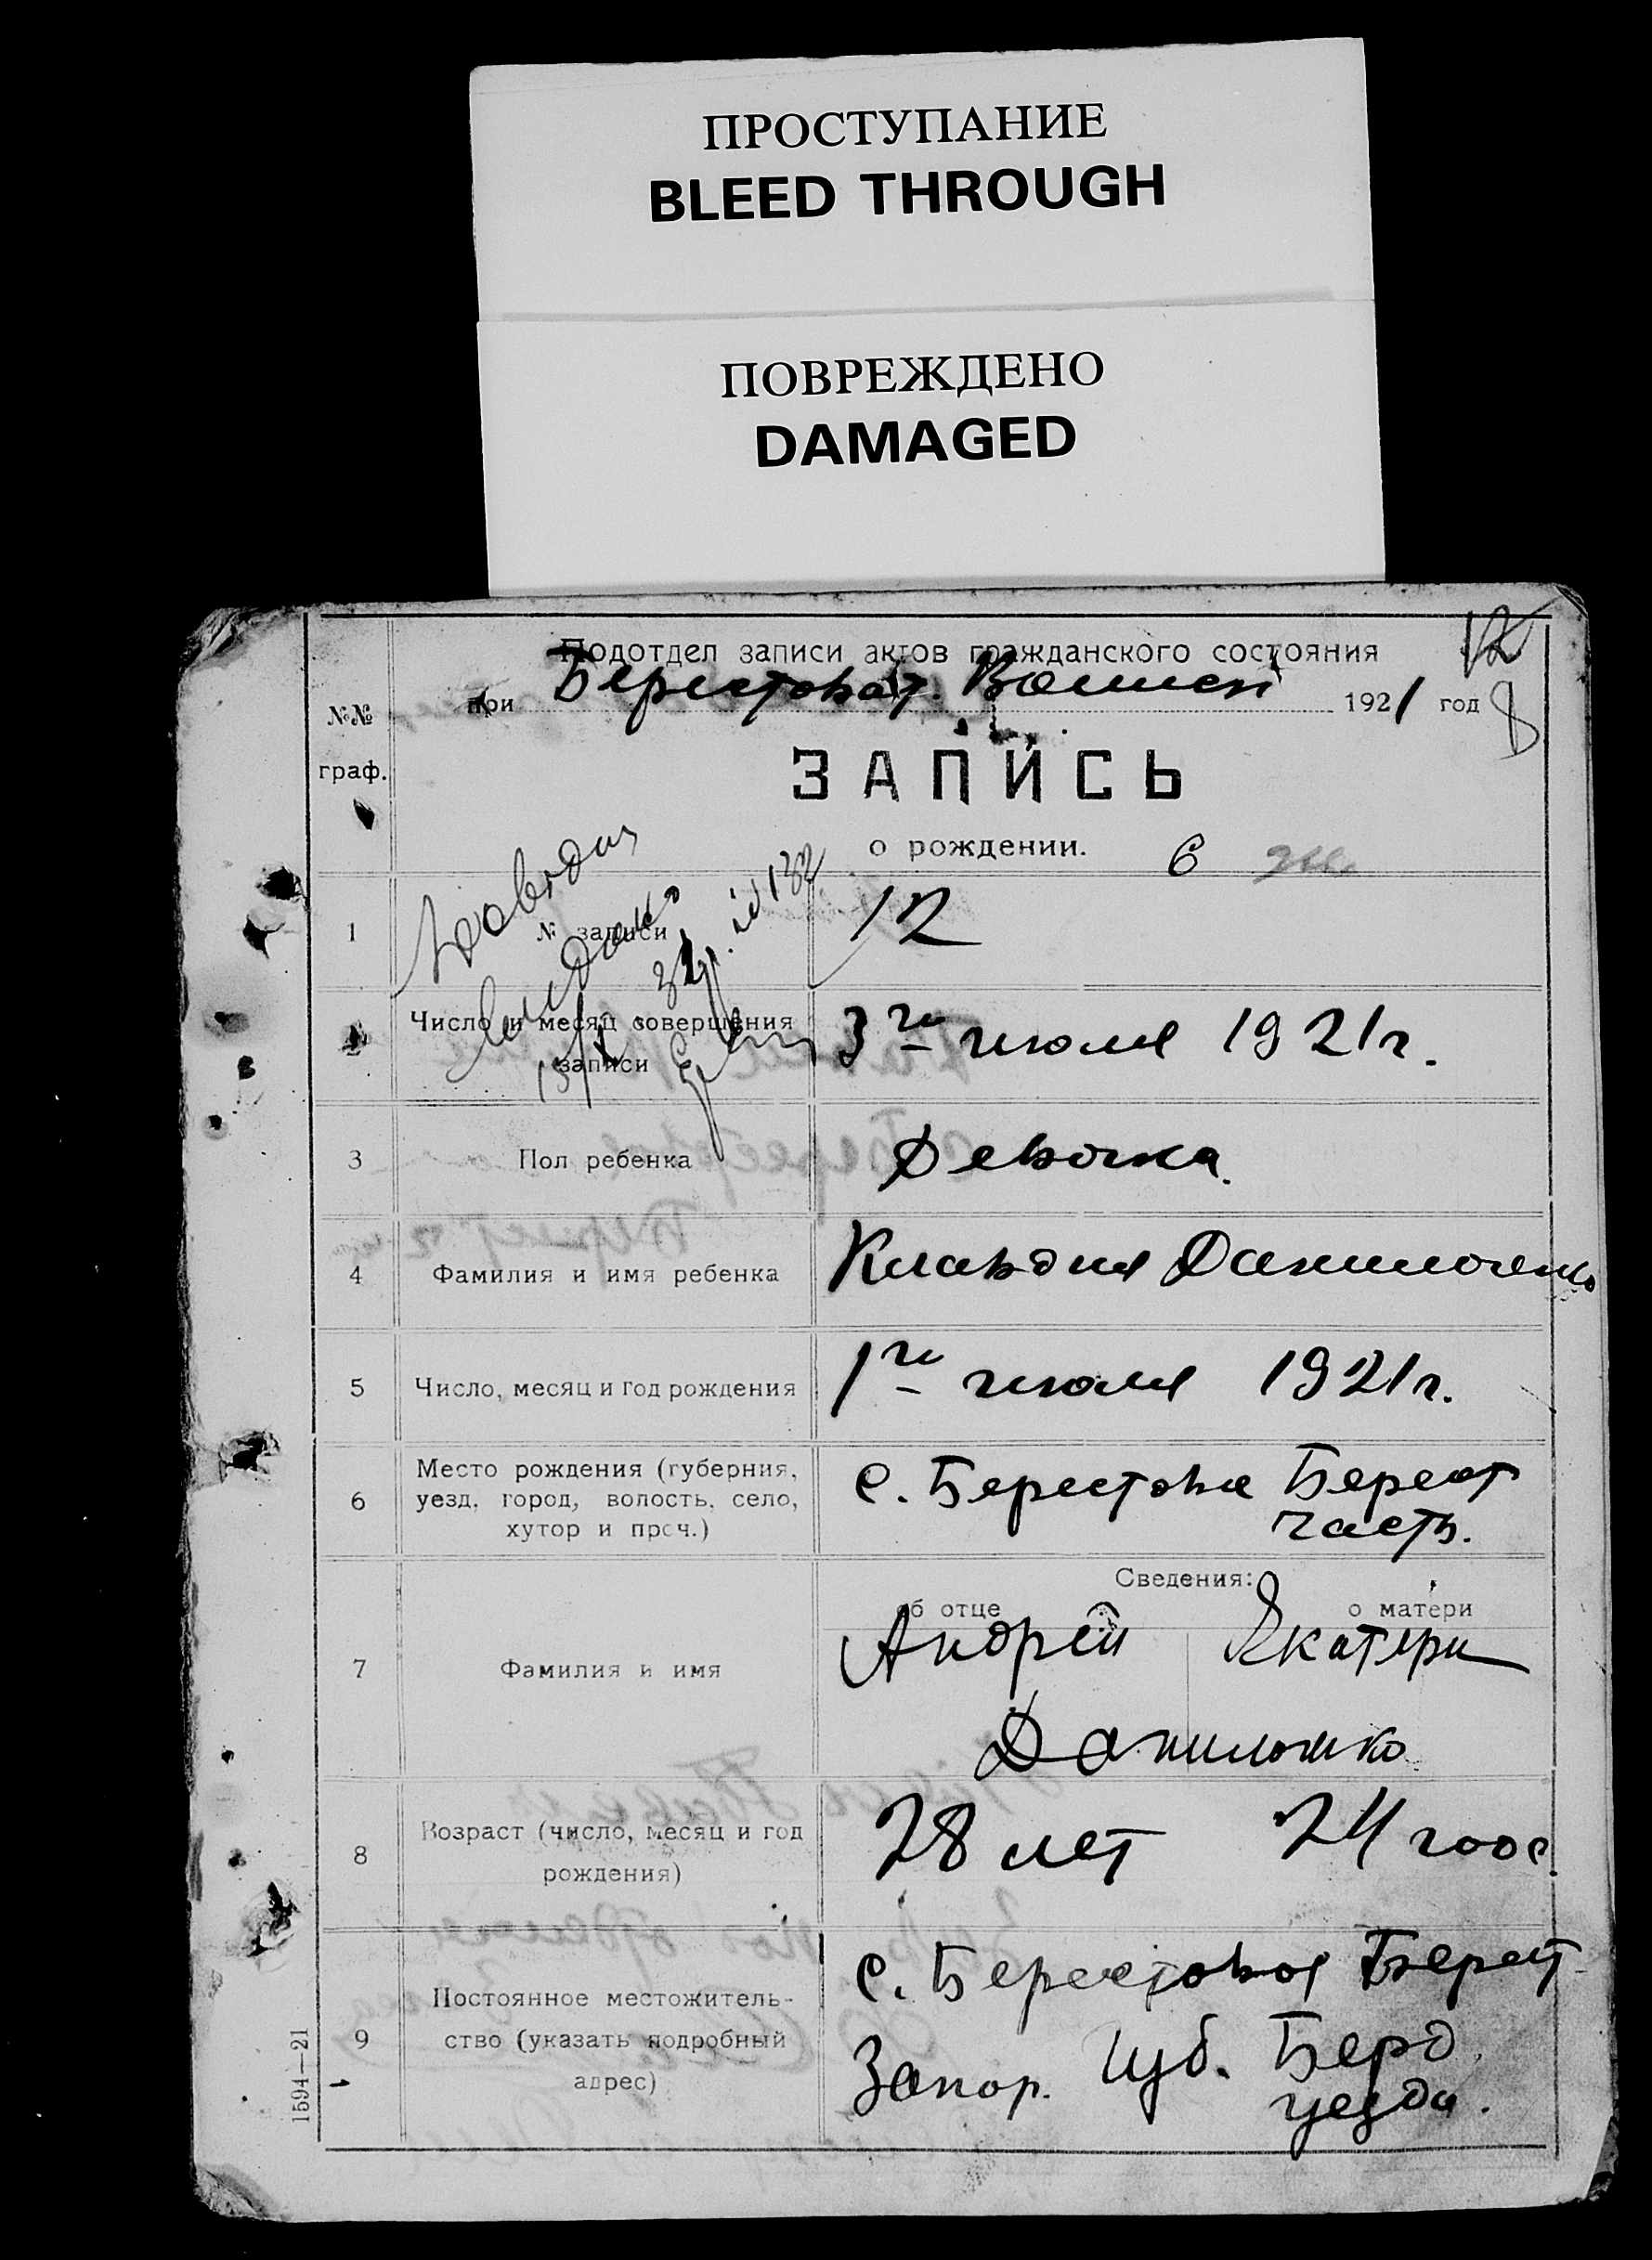 ПРОСТУПАНИЕ
BLEED THROUGH
ПОВРЕЖДЕНО
DAMAGED
12
Подотдел записи актов гражданского состояния
при Берестоват. 1921 год
8
№№ граф.
ЗАПИСЬ
о рождении. 6
1 № записи 12
2 Число и месяц совершения записи 3го июля 1921 г.
3 Пол ребенка Девочка.
4 Фамилия и имя ребенка Клавдия Данилоченко
5 Число, месяц и год рождения 1го июля 1921 г.
6 Место рождения (губерния,
уезд, город, волость, село, с. Берестовое Берест
хутор и проч.) часть.
Сведения:
об отце о матери
Андрей Екатери
7 Фамилия и имя
8 Возраст (число, месяц и год 28 лет 24 года
рождения)
с. Берестовое Берест
9 Постоянное местожитель-
ство (указать подробный Запор. Губ. Берд.
адрес) уезда.
1594—21